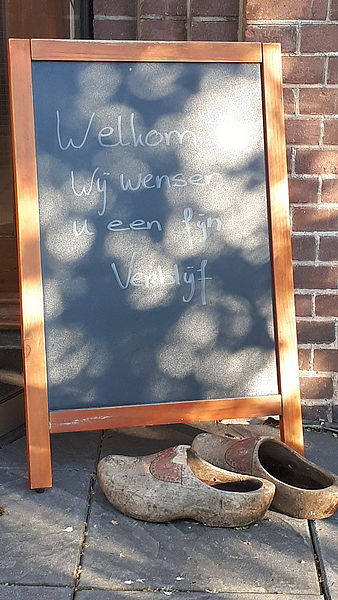 Welkom
Wij wensen
u een fijn
Verblijf